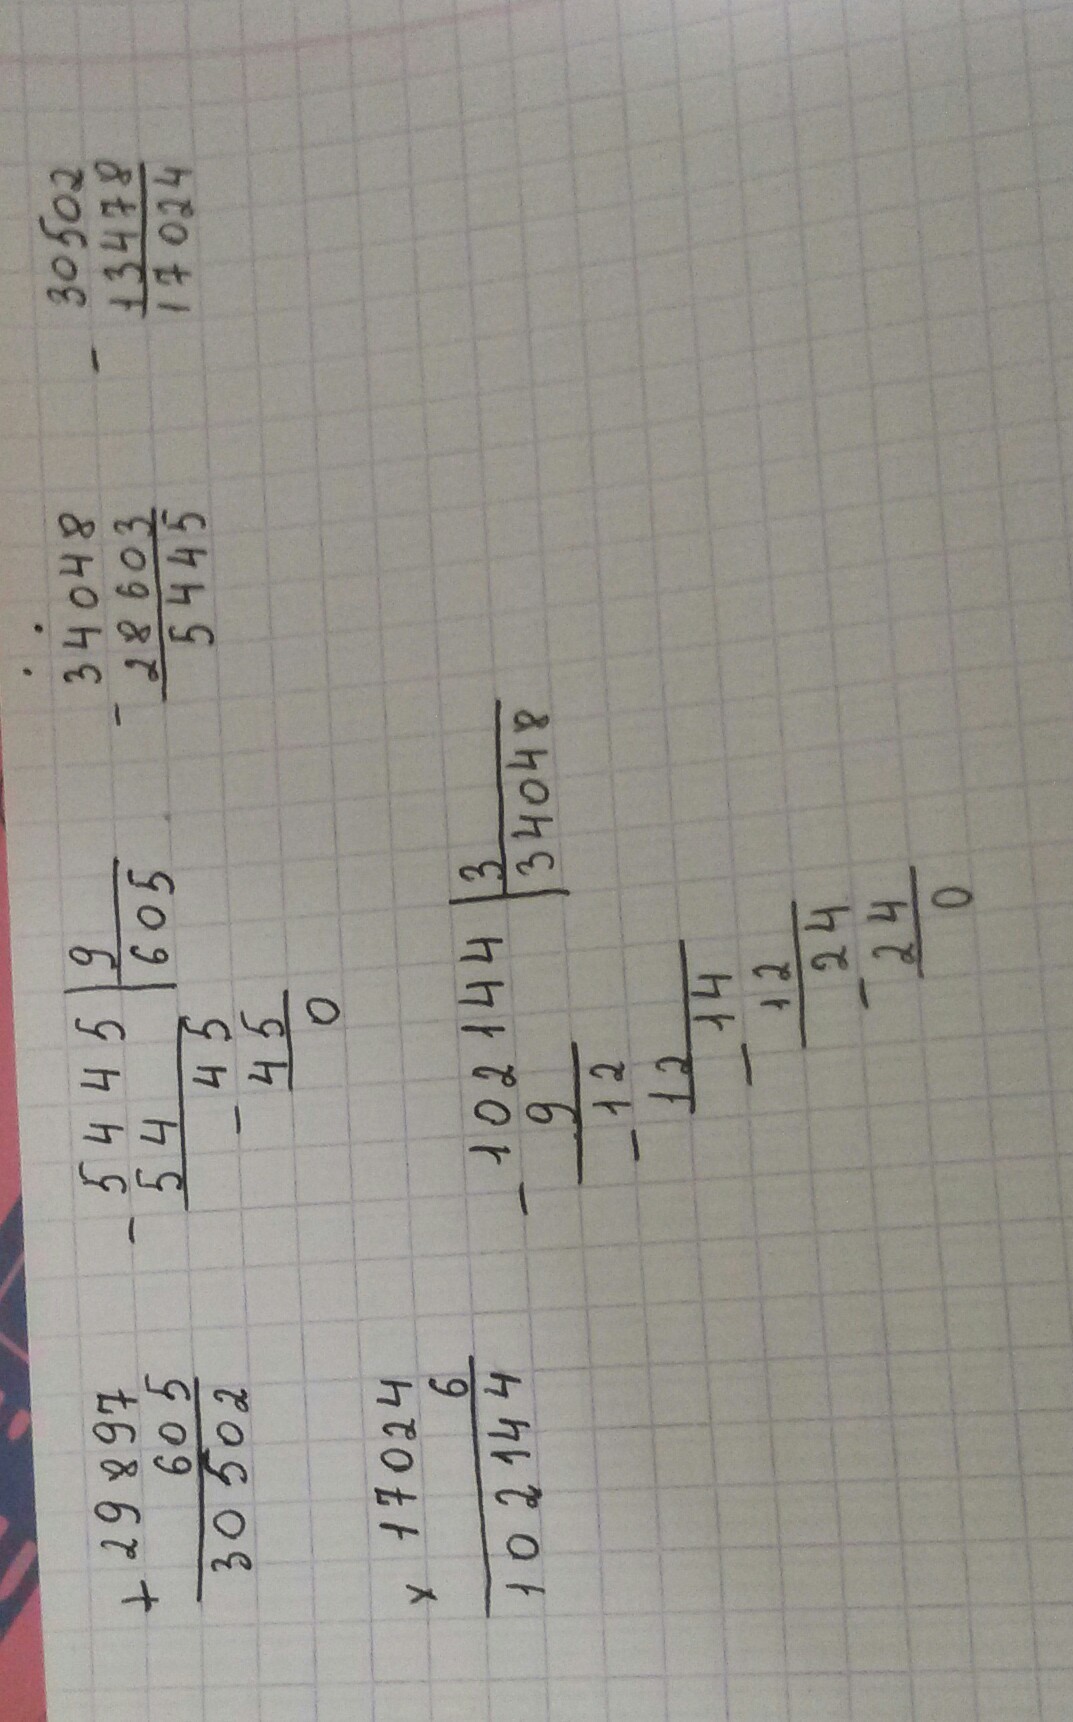 + 29897
605
30502
- 5445 | 9
54 | 605
- 45
45
0
- 34048
28603
5445
- 30502
13478
17024
x 17024
6
102144
- 102144 | 3
9 | 34048
- 12
12
- 14
12
- 24
24
0